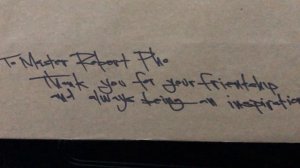 To Master Robert Pho
Thank you for your friendship
and always being an inspiration